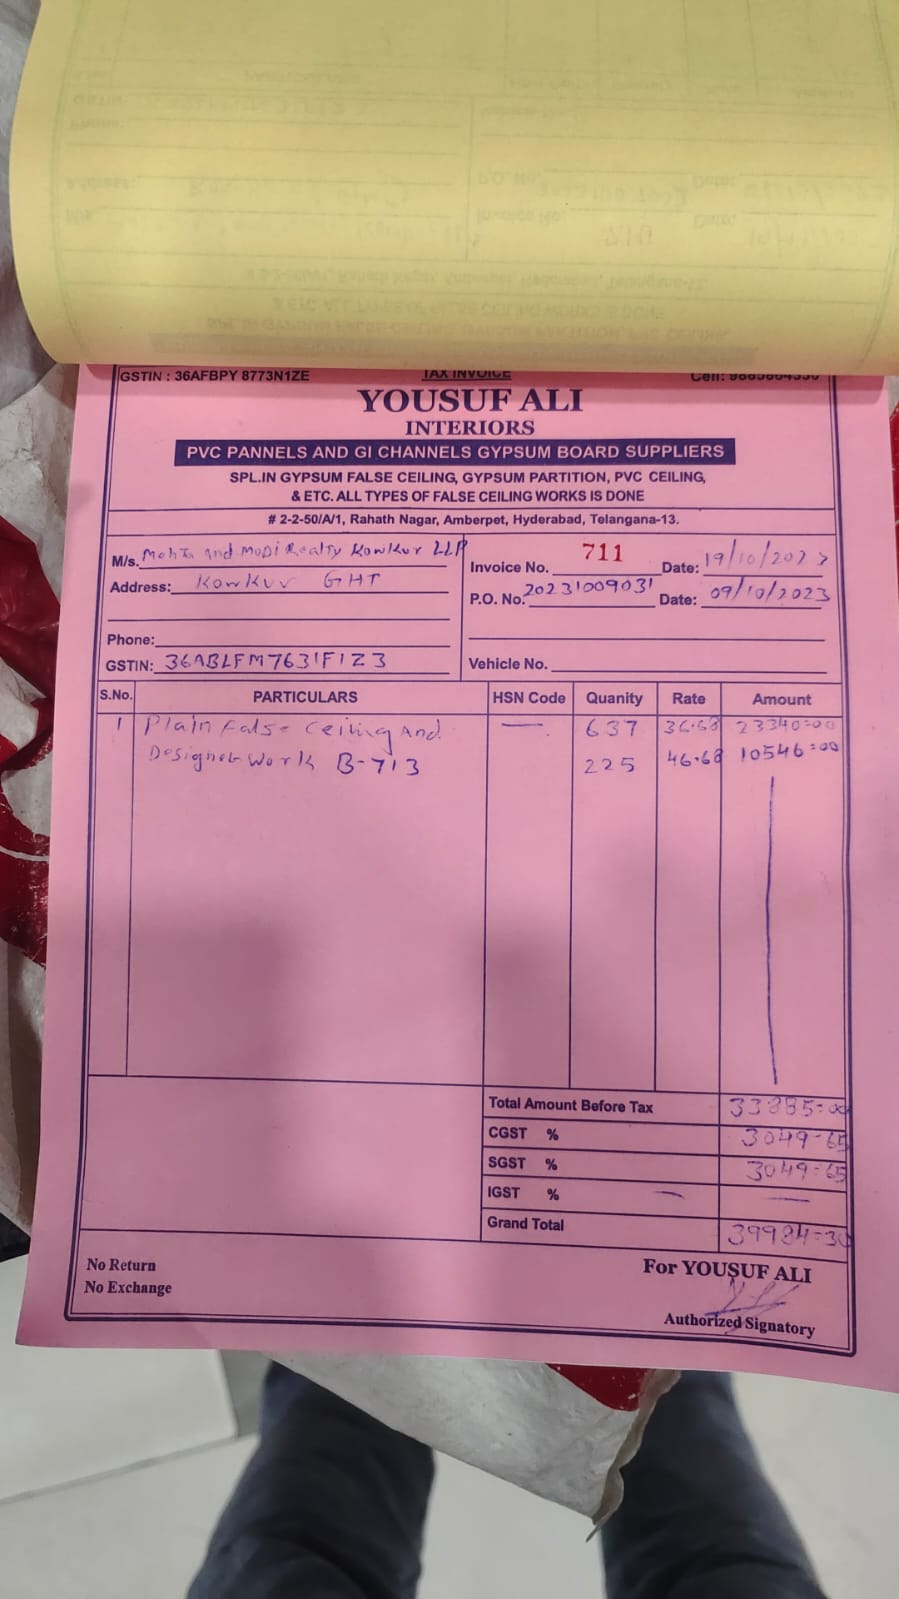 GSTIN : 36AFBPY 8773N1ZE
TAX INVOICE
Cell:
YOUSUF ALI
INTERIORS
PVC PANNELS AND GI CHANNELS GYPSUM BOARD SUPPLIERS
SPL.IN GYPSUM FALSE CEILING, GYPSUM PARTITION, PVC CEILING,
& ETC. ALL TYPES OF FALSE CEILING WORKS IS DONE
# 2-2-50/A/1, Rahath Nagar, Amberpet, Hyderabad, Telangana-13.
M/s. Mehta and Modi Realty Kowkur LLP
Address: Kowkur GHT
Phone:
GSTIN: 36ABLFM7631F1Z3
Invoice No. 711 Date: 19/10/2023
P.O. No. 20231009031 Date: 09/10/2023
Vehicle No.
S.No. PARTICULARS HSN Code Quanity Rate Amount
1 Plain False Ceiling And — 637 36.68 23340=00
Designer Work B-713 225 46.68 10546=00
Total Amount Before Tax 33885=00
CGST % 3049-65
SGST % 3049=65
IGST % — —
Grand Total 39984=30
No Return
No Exchange
For YOUSUF ALI
Authorized Signatory